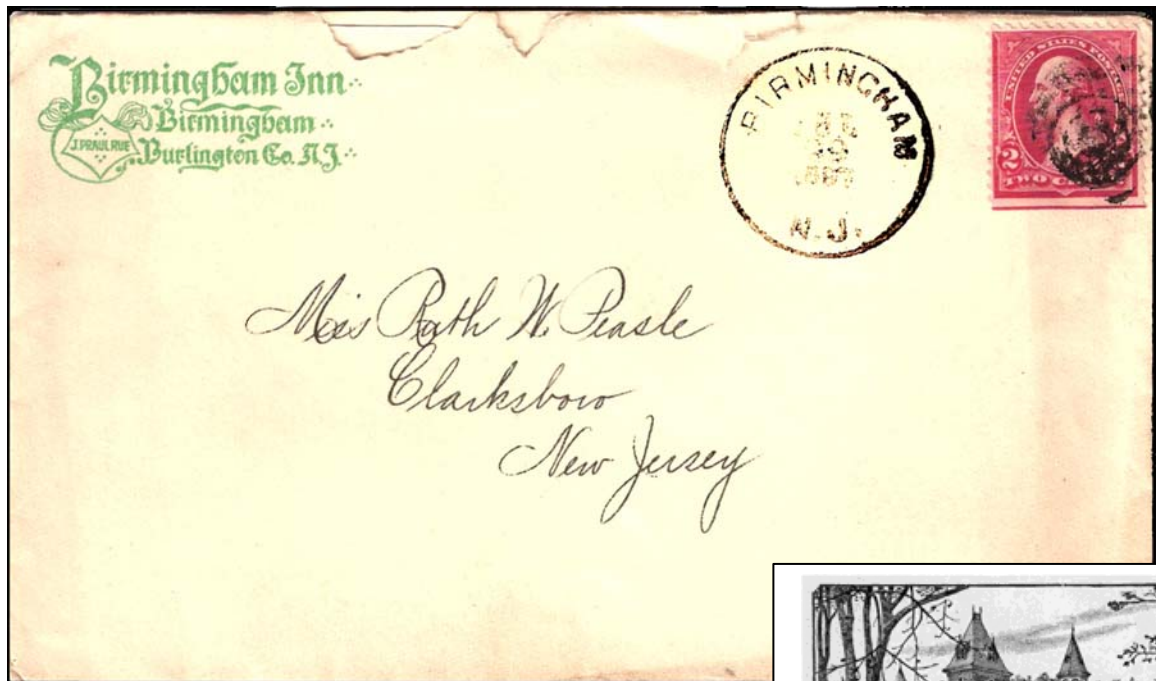 Birmingham Inn
Birmingham
J. PRAUL RUE
Burlington Co. N.J.
BIRMINGHAM
N.J.
UNITED STATES POSTAGE
2
TWO
Miss Ruth W. Peasle
Clarksboro
New Jersey